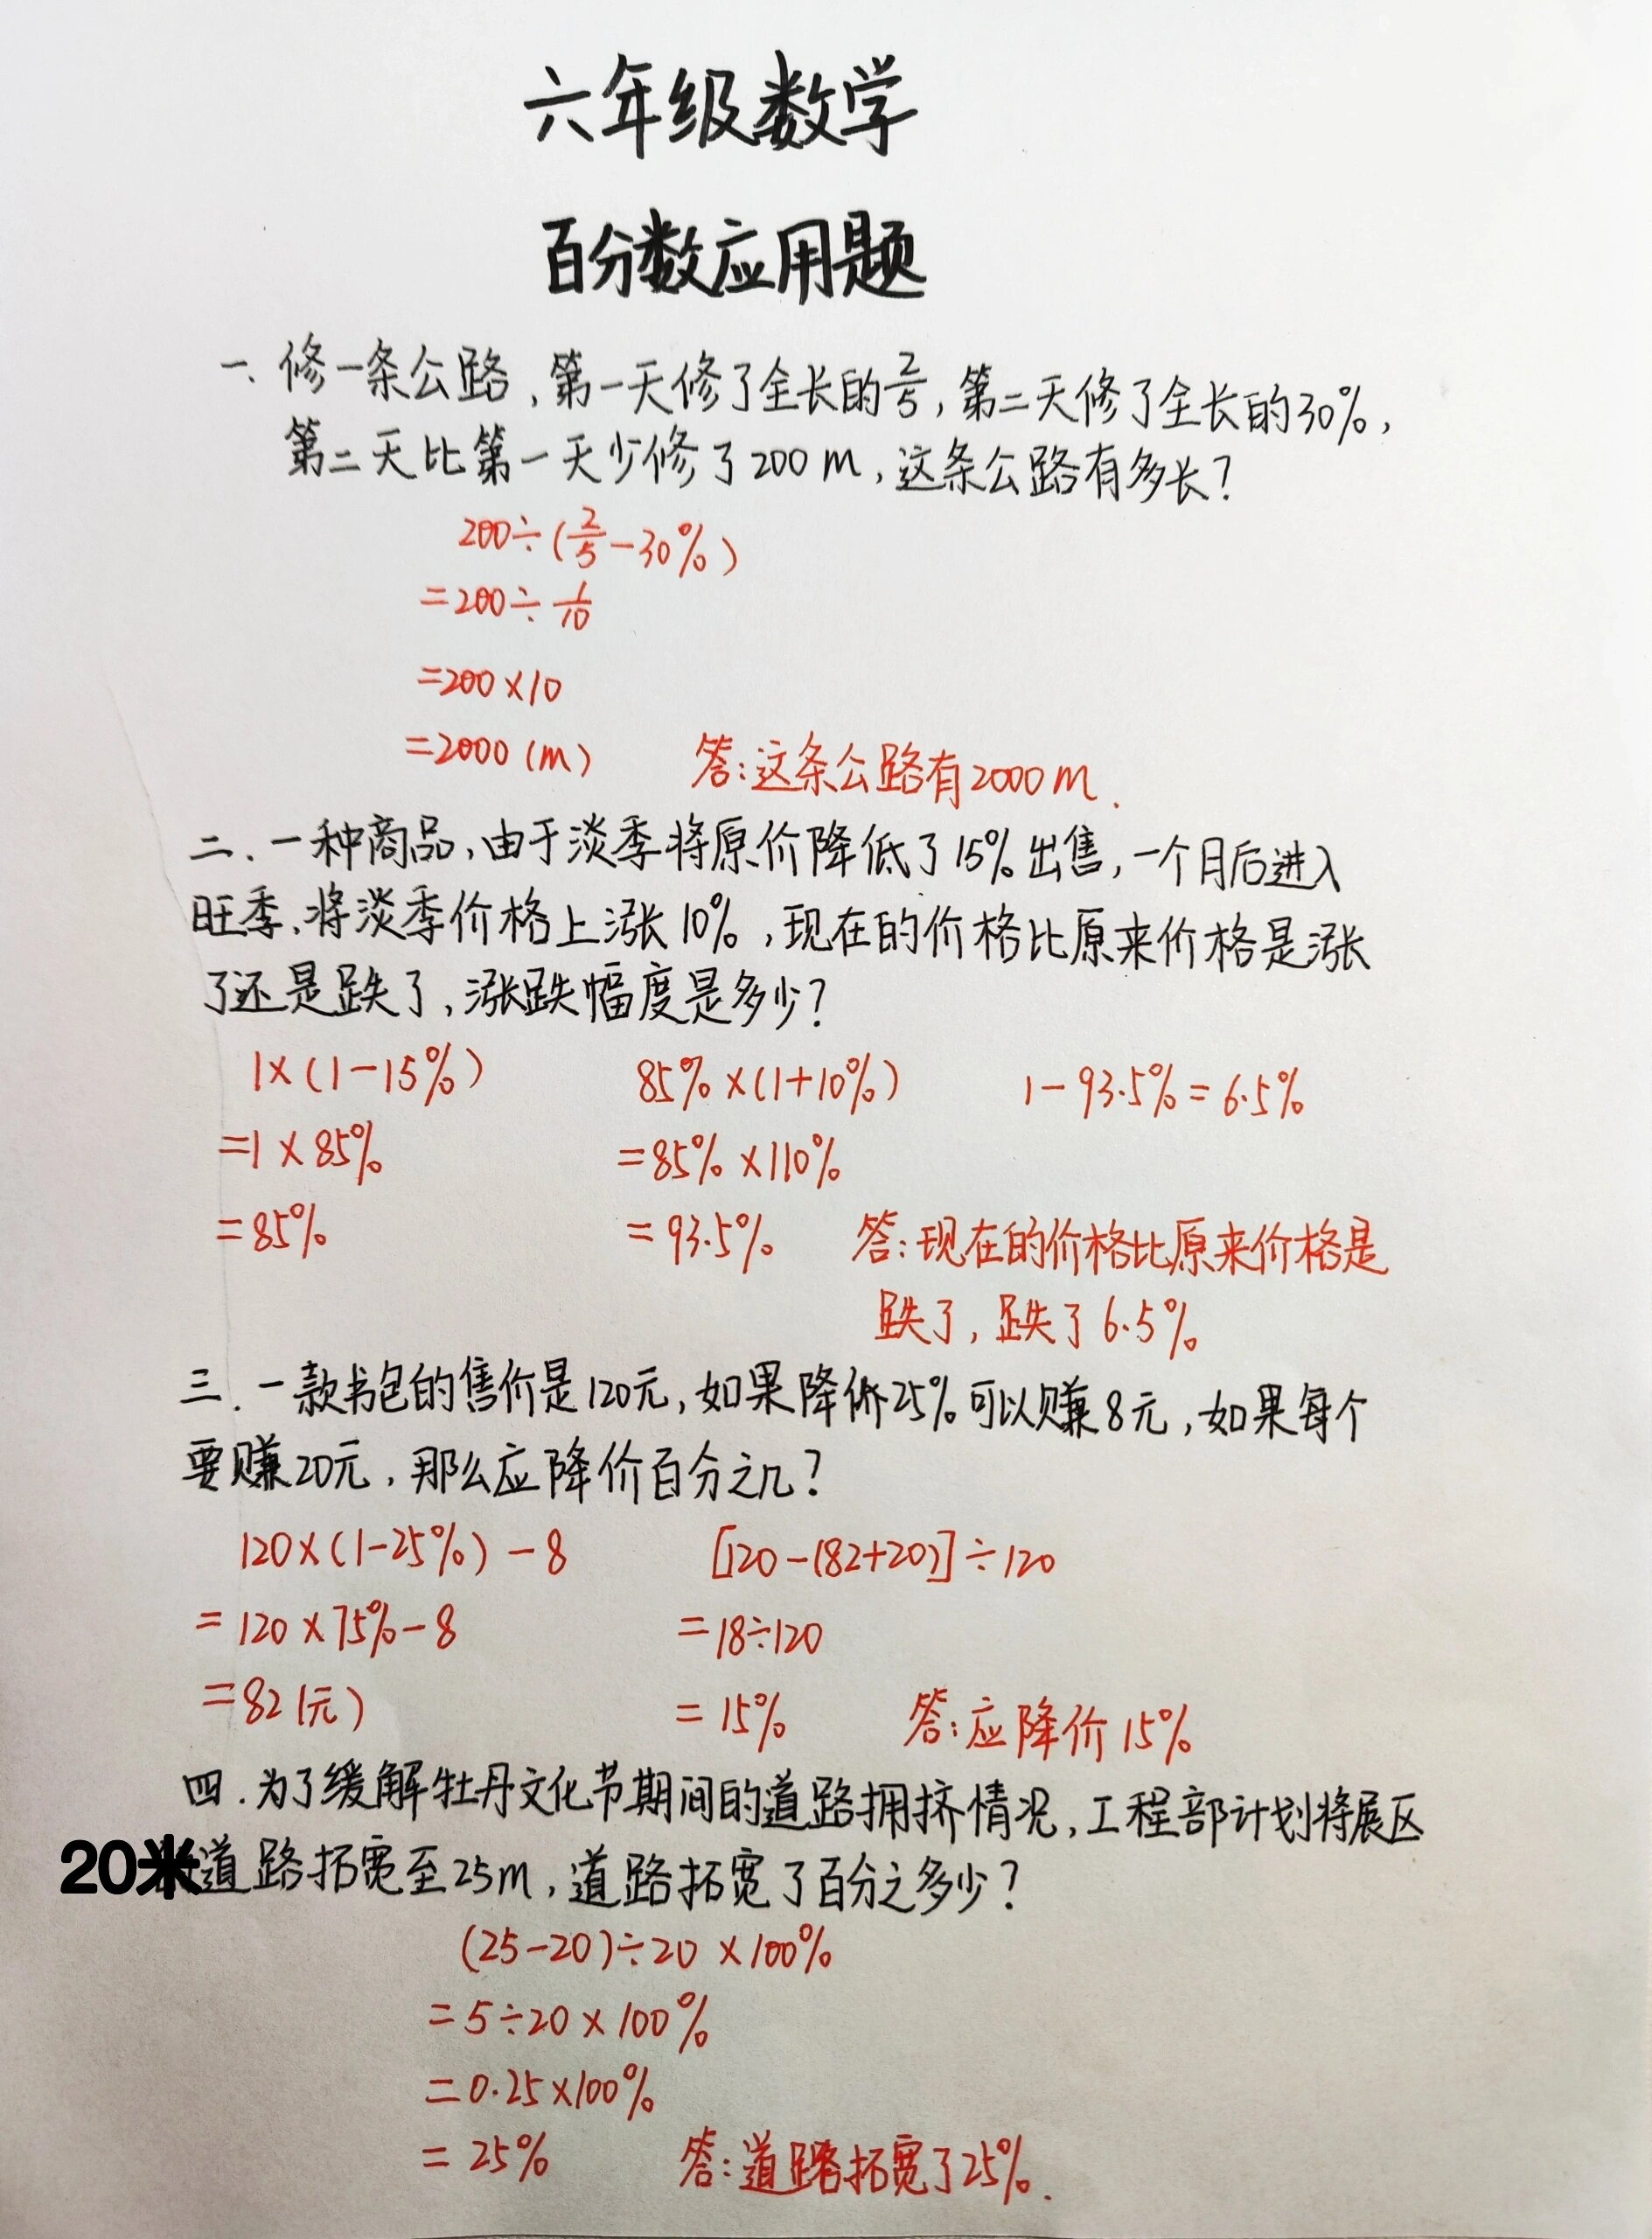 六年级数学
百分数应用题
一、修一条公路,第一天修了全长的2/5,第二天修了全长的30%,
第二天比第一天少修了200m,这条公路有多长?
200÷(2/5-30%)
=200÷1/10
=200×10
=2000(m) 答:这条公路有2000m.
二.一种商品,由于淡季将原价降低了15%出售,一个月后进入
旺季,将淡季价格上涨10%,现在的价格比原来价格是涨
了还是跌了,涨跌幅度是多少?
1×(1-15%) 85%×(1+10%) 1-93.5%=6.5%
=1×85% =85%×110%
=85% =93.5% 答:现在的价格比原来价格是
跌了,跌了6.5%
三.一款书包的售价是120元,如果降价25%可以赚8元,如果每个
要赚20元,那么应降价百分之几?
120×(1-25%)-8 [120-(82+20)]÷120
=120×75%-8 =18÷120
=82(元) =15% 答:应降价15%
四.为了缓解牡丹文化节期间的道路拥挤情况,工程部计划将展区
20米道路拓宽至25m,道路拓宽了百分之多少?
(25-20)÷20×100%
=5÷20×100%
=0.25×100%
=25% 答:道路拓宽了25%.